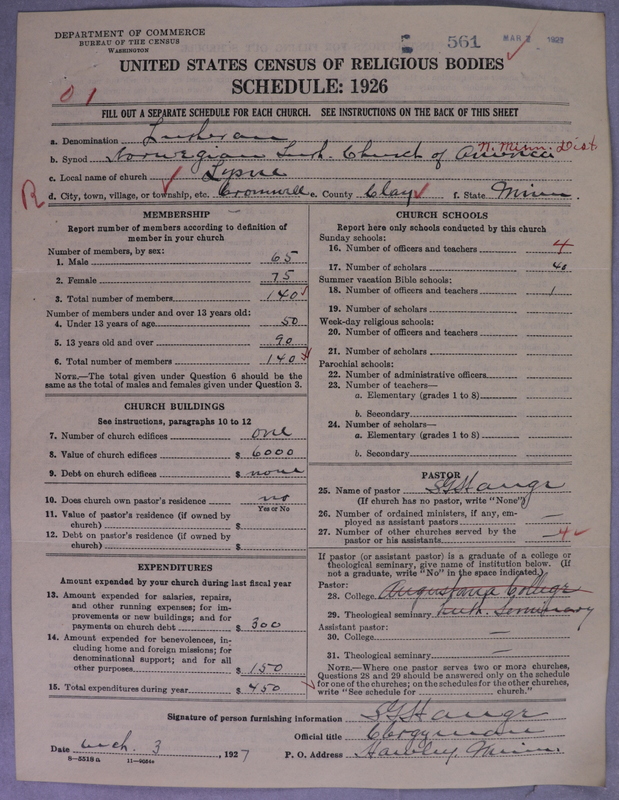 DEPARTMENT OF COMMERCE
BUREAU OF THE CENSUS
WASHINGTON
561 MAR 2 1927
UNITED STATES CENSUS OF RELIGIOUS BODIES
SCHEDULE: 1926
01
FILL OUT A SEPARATE SCHEDULE FOR EACH CHURCH. SEE INSTRUCTIONS ON THE BACK OF THIS SHEET
a. Denomination Lutheran
b. Synod Norwegian Luth. Church of America N. Minn. Dist
c. Local name of church Lysne
R
d. City, town, village, or township, etc. Cromwell e. County Clay f. State Minn.
MEMBERSHIP
Report number of members according to definition of
member in your church
Number of members, by sex:
1. Male 65
2. Female 75
3. Total number of members 140
Number of members under and over 13 years old:
4. Under 13 years of age 50
5. 13 years old and over 90
6. Total number of members 140
NOTE.—The total given under Question 6 should be the
same as the total of males and females given under Question 3.
CHURCH BUILDINGS
See instructions, paragraphs 10 to 12
7. Number of church edifices one
8. Value of church edifices $ 6000
9. Debt on church edifices $ none
10. Does church own pastor's residence no
Yes or No
11. Value of pastor's residence (if owned by
church) $
12. Debt on pastor's residence (if owned by
church) $
EXPENDITURES
Amount expended by your church during last fiscal year
13. Amount expended for salaries, repairs,
and other running expenses; for im-
provements or new buildings; and for
payments on church debt $ 300
14. Amount expended for benevolences, in-
cluding home and foreign missions; for
denominational support; and for all
other purposes $ 150
15. Total expenditures during year $ 450
CHURCH SCHOOLS
Report here only schools conducted by this church
Sunday schools:
16. Number of officers and teachers 4
17. Number of scholars 40
Summer vacation Bible schools:
18. Number of officers and teachers 1
19. Number of scholars
Week-day religious schools:
20. Number of officers and teachers
21. Number of scholars
Parochial schools:
22. Number of administrative officers
23. Number of teachers—
a. Elementary (grades 1 to 8)
b. Secondary
24. Number of scholars—
a. Elementary (grades 1 to 8)
b. Secondary
PASTOR
25. Name of pastor S G Hauge
(If church has no pastor, write "None")
26. Number of ordained ministers, if any, em-
ployed as assistant pastors —
27. Number of other churches served by the
pastor or his assistants 4
If pastor (or assistant pastor) is a graduate of a college or
theological seminary, give name of institution below. (If
not a graduate, write "No" in the space indicated.)
Pastor:
28. College Augustana College
29. Theological seminary Luth. Seminary
Assistant pastor:
30. College —
31. Theological seminary —
NOTE.—Where one pastor serves two or more churches,
Questions 28 and 29 should be answered only on the schedule
for one of the churches; on the schedules for the other churches,
write "See schedule for church."
Signature of person furnishing information S G Hauge
Official title Clergyman
Date Mch. 3, 1927 P. O. Address Hawley, Minn.
8—5518 a 11—9064a